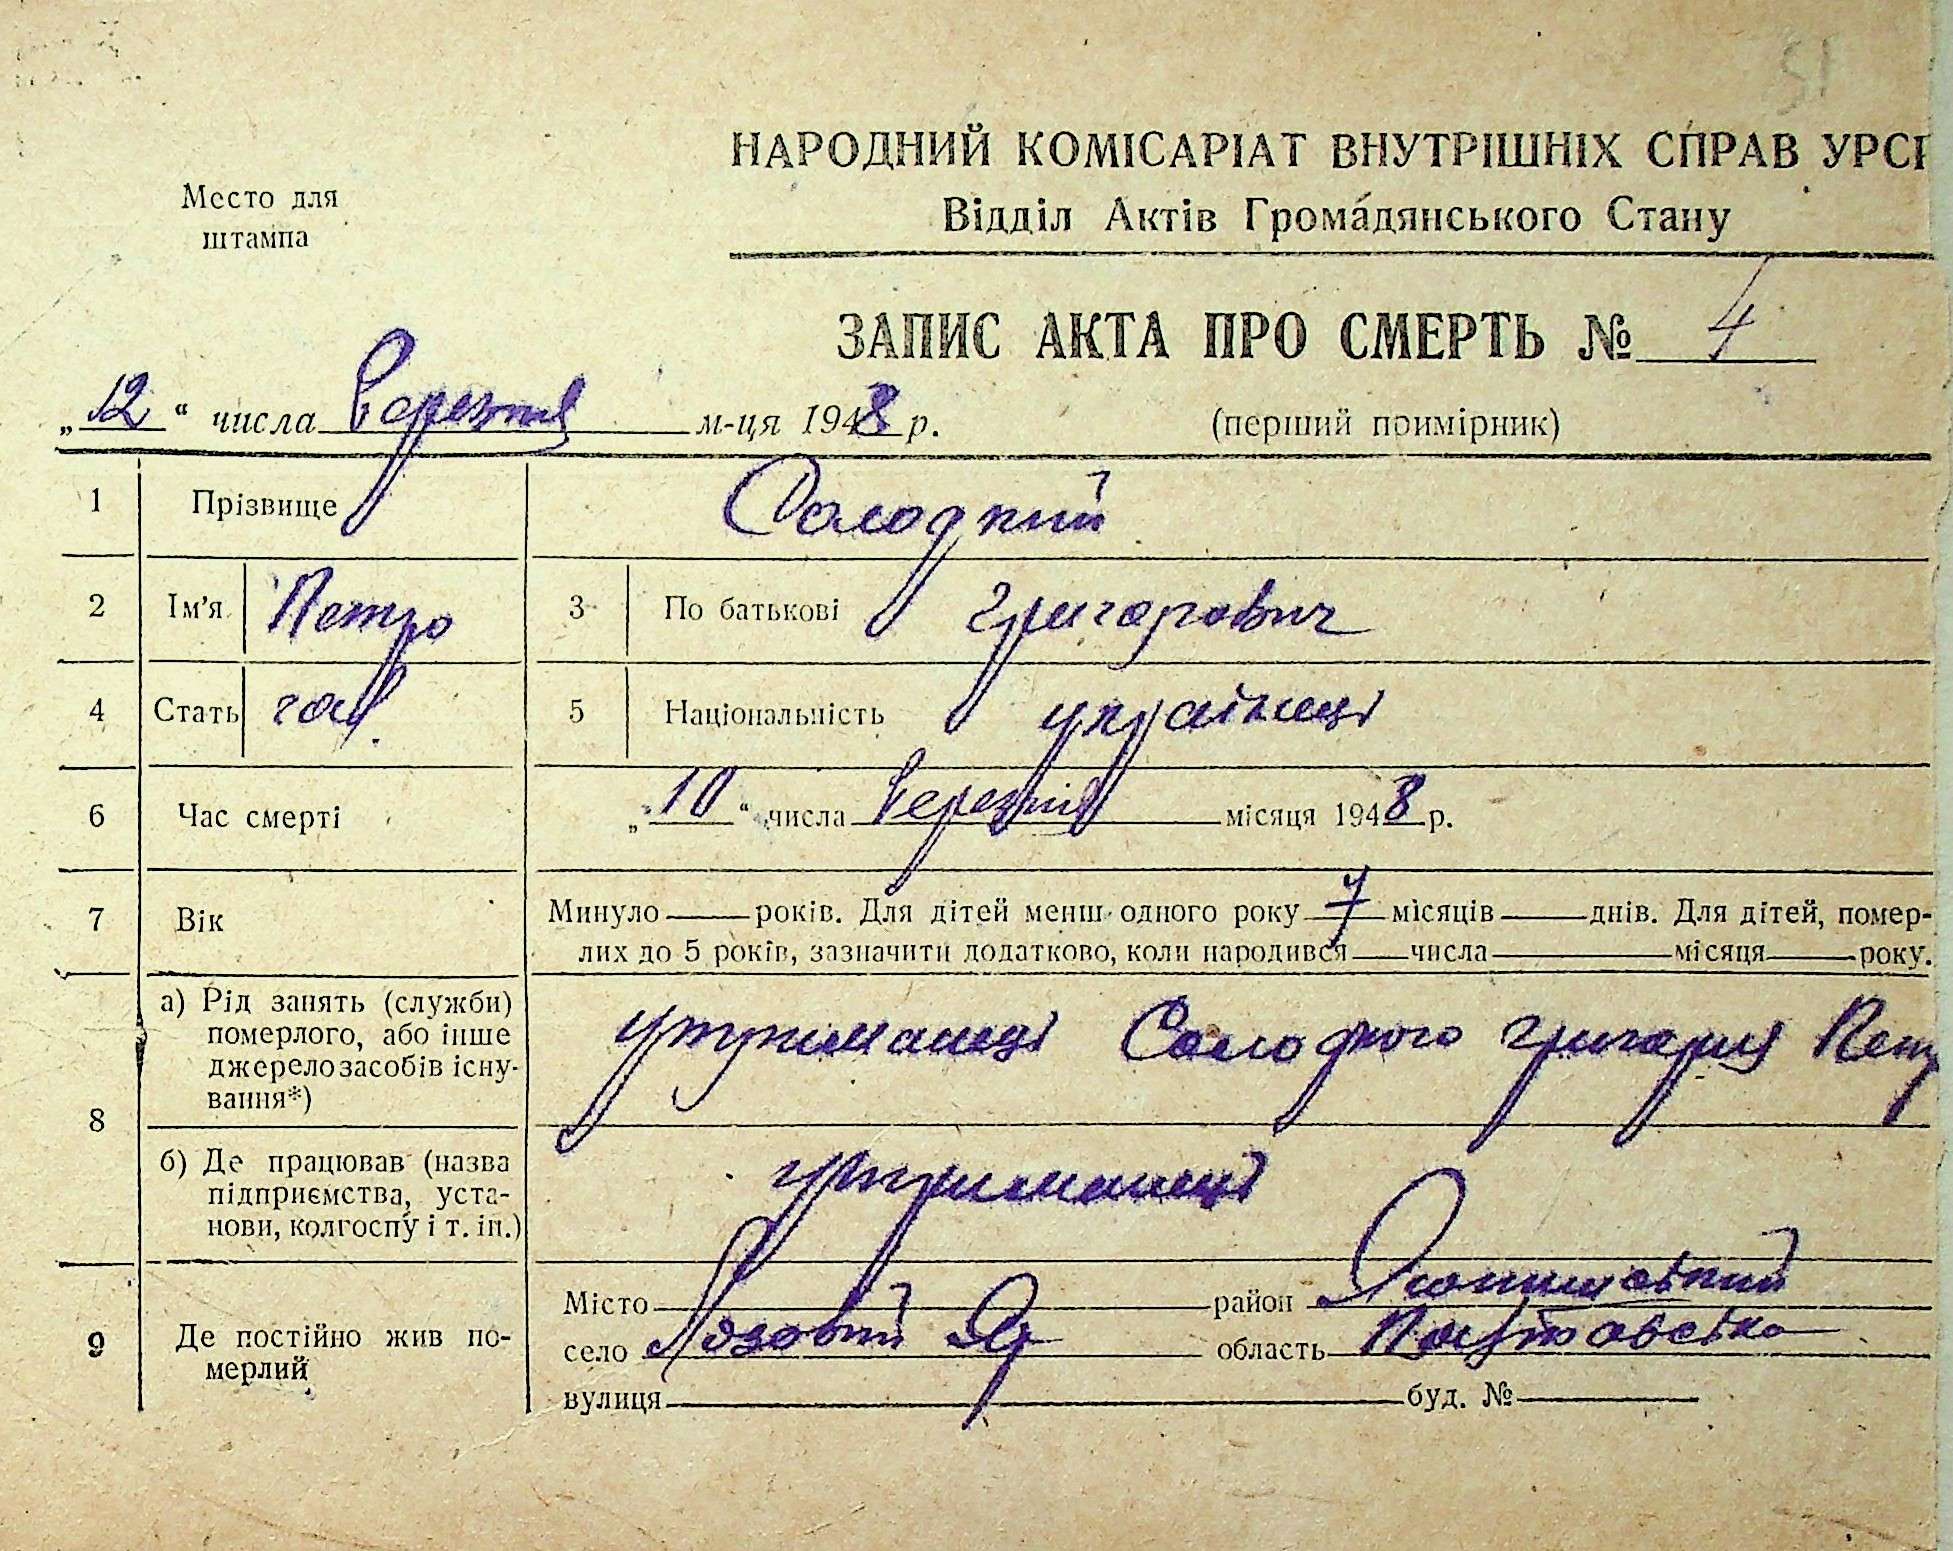 51
НАРОДНИЙ КОМІСАРІАТ ВНУТРІШНІХ СПРАВ УРСР
Відділ Актів Громадянського Стану
Место для
штампа
ЗАПИС АКТА ПРО СМЕРТЬ № 4
„12“ числа березня м-ця 1948 р. (перший примірник)
1 Прізвище Солодкий
2 Ім'я Петро 3 По батькові Григорович
4 Стать чол. 5 Національність українець
6 Час смерті „10“ числа березня місяця 1948 р.
7 Вік Минуло — років. Для дітей менш одного року 7 місяців — днів. Для дітей, помер-
лих до 5 років, зазначити додатково, коли народився — числа — місяця — року.
8 а) Рід занять (служби)
померлого, або інше
джерело засобів існу-
вання*)
утриманець Солодкого Григорія Петр
б) Де працював (назва
підприємства, уста-
нови, колгоспу і т. ін.)
утриманець
9 Де постійно жив по-
мерлий
Місто — район
село Лозовий Яр область Полтавська
вулиця — буд. № —